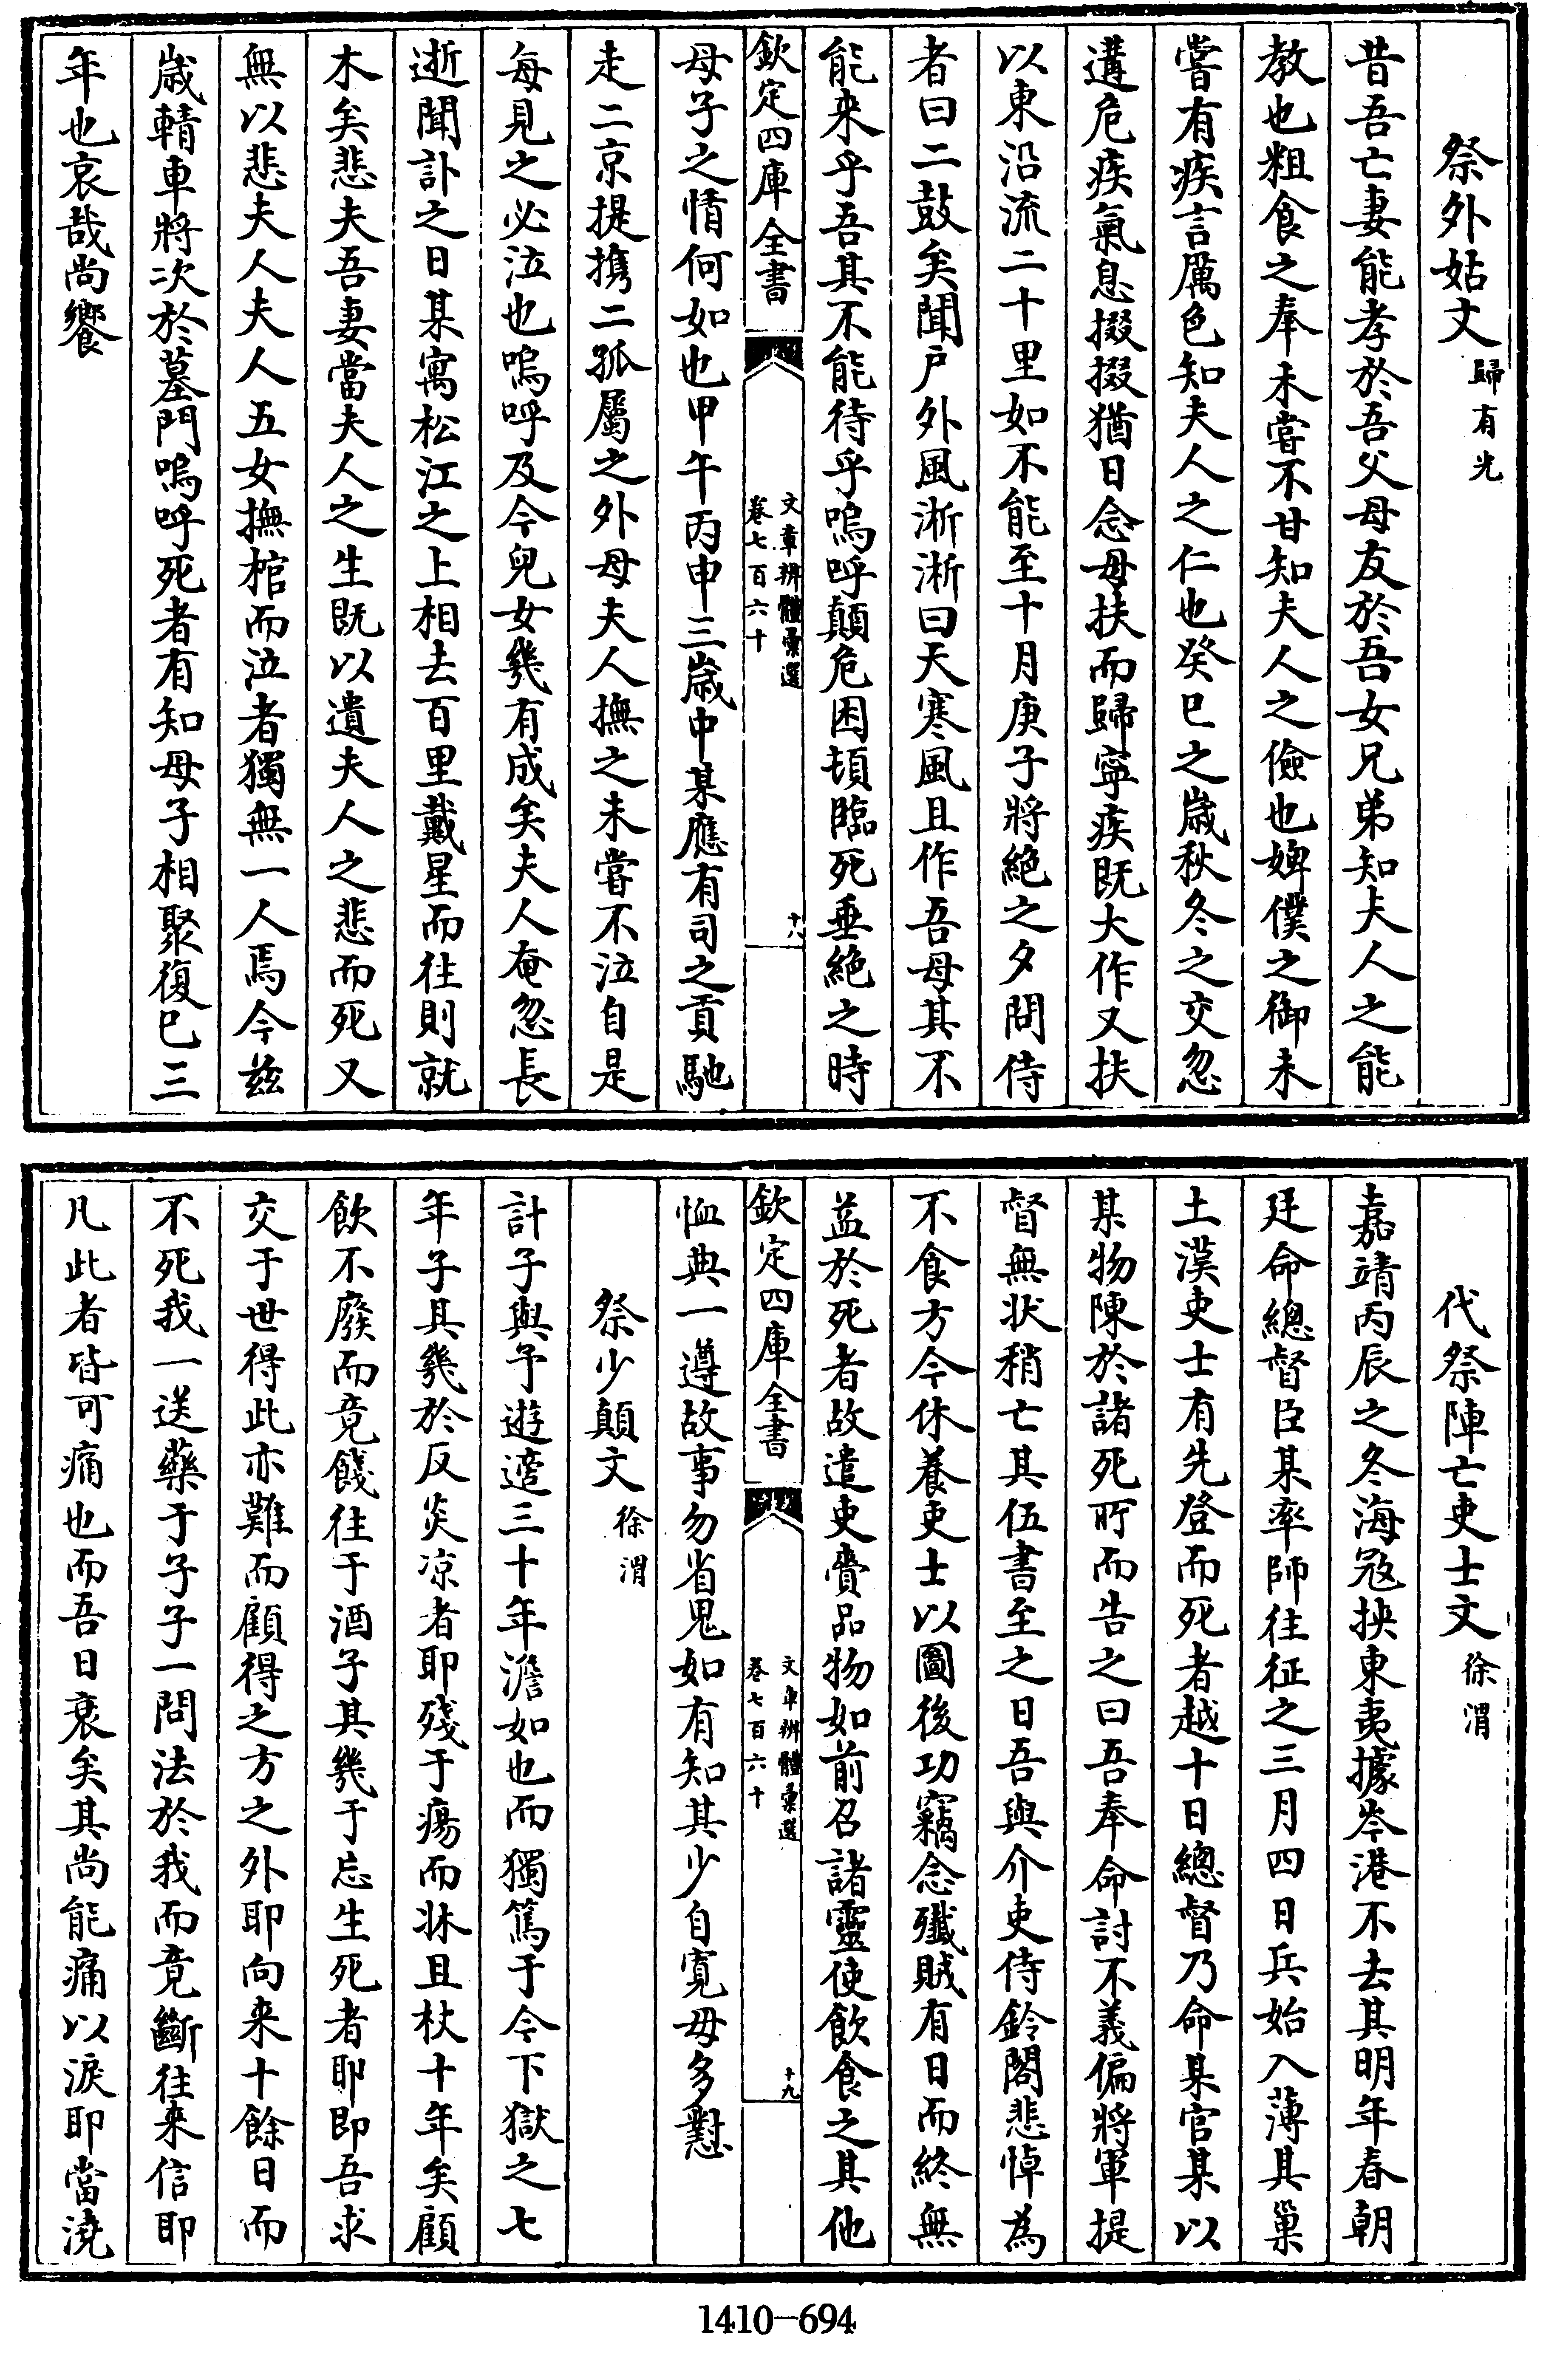 祭外姑文歸有光
昔吾亡妻能孝於吾父母友於吾女兄弟知夫人之能
教也粗食之奉未嘗不甘知夫人之儉也婢僕之御未
嘗有疾言厲色知夫人之仁也癸巳之歲秋冬之交忽
遘危疾氣息掇掇猶日念母扶而歸寧疾既大作又扶
以東沿流二十里如不能至十月庚子將絶之夕問侍
者曰二鼓矣聞戶外風淅淅曰天寒風且作吾母其不
能来乎吾其不能待乎嗚呼顛危困頓臨死垂絶之時
欽定四庫全書
文章辨體彙選
卷七百六十
十八
母子之情何如也甲午丙申三歲中某應有司之貢馳
走二京提攜二孤屬之外母夫人撫之未嘗不泣自是
每見之必泣也嗚呼及今兒女幾有成矣夫人奄忽長
逝聞訃之日某寓松江之上相去百里戴星而往則就
木矣悲夫吾妻當夫人之生既以遺夫人之悲而死又
無以悲夫人夫人五女撫棺而泣者獨無一人焉今兹
歲輤車將次於墓門嗚呼死者有知母子相聚復已三
年也哀哉尚饗
代祭陣亡吏士文徐渭
嘉靖丙辰之冬海冦挾東夷據岑港不去其明年春朝
廷命總督臣某率師往征之三月四日兵始入薄其巢
土漢吏士有先登而死者越十日總督乃命某官某以
某物陳於諸死所而告之曰吾奉命討不義偏將軍提
督無狀稍亡其伍書至之日吾與介吏侍鈴閣悲悼為
不食方今休養吏士以圖後功竊念殲賊有日而終無
益於死者故遣吏賫品物如前召諸靈使飲食之其他
欽定四庫全書
文章辨體彙選
卷七百六十
十九
恤典一遵故事勿省鬼如有知其少自寛毋多懟
祭少顛文徐渭
計子與予遊邀三十年澹如也而獨篤于今下獄之七
年子其幾於反炎凉者耶殘于瘍而牀且杖十年矣顧
飲不廢而竟餞往于酒子其幾于忘生死者耶即吾求
交于世得此亦難而顧得之方之外耶向来十餘日而
不死我一送藥于子子一問法於我而竟斷往来信耶
凡此者皆可痛也而吾日衰矣其尚能痛以淚耶當澆
1410-694